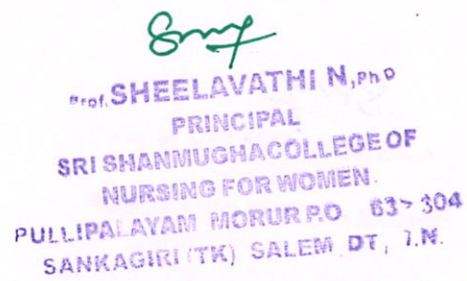 Prof. SHEELAVATHI N, PhD
PRINCIPAL
SRI SHANMUGHA COLLEGE OF
NURSING FOR WOMEN.
PULLIPALAYAM MORUR P.O 637 304
SANKAGIRI (TK) SALEM DT, T.N.